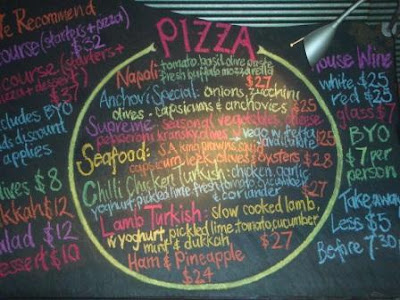 We Recommend
course (starters + pizza)
$32
course (starters +
pizza + dessert)
$37
includes BYO
cards discount
applies
olives $8
Dukkah $12
Salad $12
Dessert $10
PIZZA
Napoli: tomato, basil olive paste
fresh buffalo mozzarella $27
Anchovi Special: onions, zucchini
olives - capsicums & anchovies $25
Supreme: seasonal vegetables, cheese
pepperoni kransky olives $27 vego w. fetta
available $25
Seafood: S.A. king prawns squid
capsicum leek, olives & oysters $28
Chilli Chicken Turkish: chicken, garlic
yoghurt, pickled lime fresh tomato cucumber
& coriander $27
Lamb Turkish: slow cooked lamb,
w yoghurt, pickled lime, tomato, cucumber
mint & dukkah $27
Ham & Pineapple
$24
House Wine
white $25
red $25
glass $7
BYO
$7 per
person
Takeaway
Less $5
Before 7:30